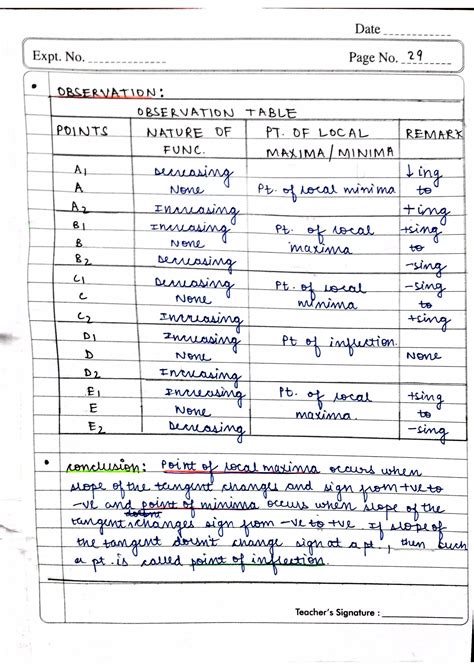 Date
Expt. No.
Page No. 29
• OBSERVATION:
OBSERVATION TABLE
POINTS NATURE OF FUNC. PT. OF LOCAL MAXIMA/MINIMA REMARK
A1 Decreasing ↓ing
A None Pt. of local minima to
A2 Increasing +ing
B1 Increasing Pt. of local +sing
B None maxima to
B2 Decreasing -sing
C1 Decreasing Pt. of local -sing
C None minima to
C2 Increasing +sing
D1 Increasing Pt of inflection.
D None None
D2 Increasing
E1 Increasing Pt. of local +sing
E None maxima. to
E2 Decreasing -sing
• conclusion: Point of local maxima occurs when
slope of the tangent changes and sign from +ve to
-ve and point of minima occurs when slope of the
tangent changes sign from -ve to +ve If slope of
the tangent doesn't change sign at a pt., then such
a pt. is called point of inflection.
Teacher's Signature :